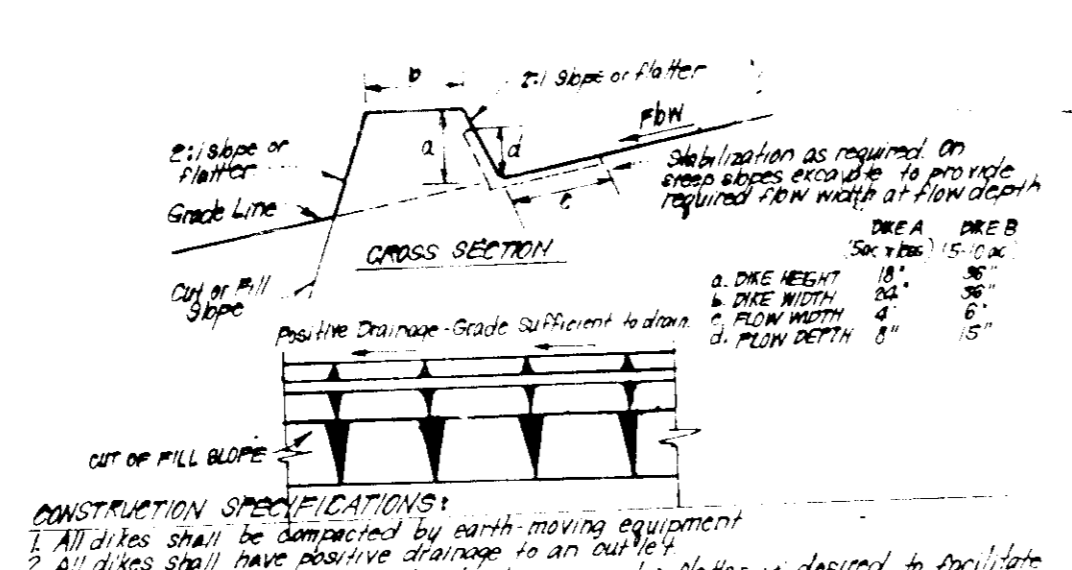 b
2:1 slope or flatter
Flow
2:1 slope or
flatter
a
d
Stabilization as required. On
steep slopes excavate to provide
required flow width at flow depth
Grade Line
c
CROSS SECTION
Cut or Fill
Slope
DIKE A DIKE B
(5ac or less) (5-10 ac)
a. DIKE HEIGHT 18" 36"
b. DIKE WIDTH 24" 36"
c. FLOW WIDTH 4' 6'
d. FLOW DEPTH 8" 15"
Positive Drainage-Grade Sufficient to drain
CUT OF FILL SLOPE
CONSTRUCTION SPECIFICATIONS:
1. All dikes shall be compacted by earth-moving equipment
2. All dikes shall have positive drainage to an outlet.
flatter desired to facilitate